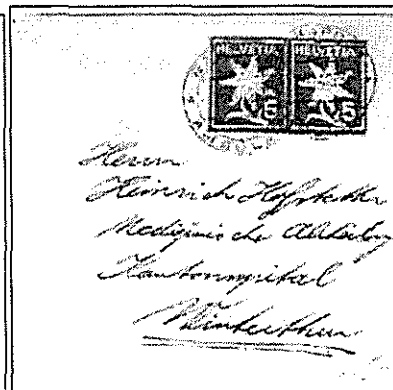 HELVETIA HELVETIA
5 5
Herrn
Heinrich Hofstetter
Medizinische Abteilung
Kantonsspital
Winterthur